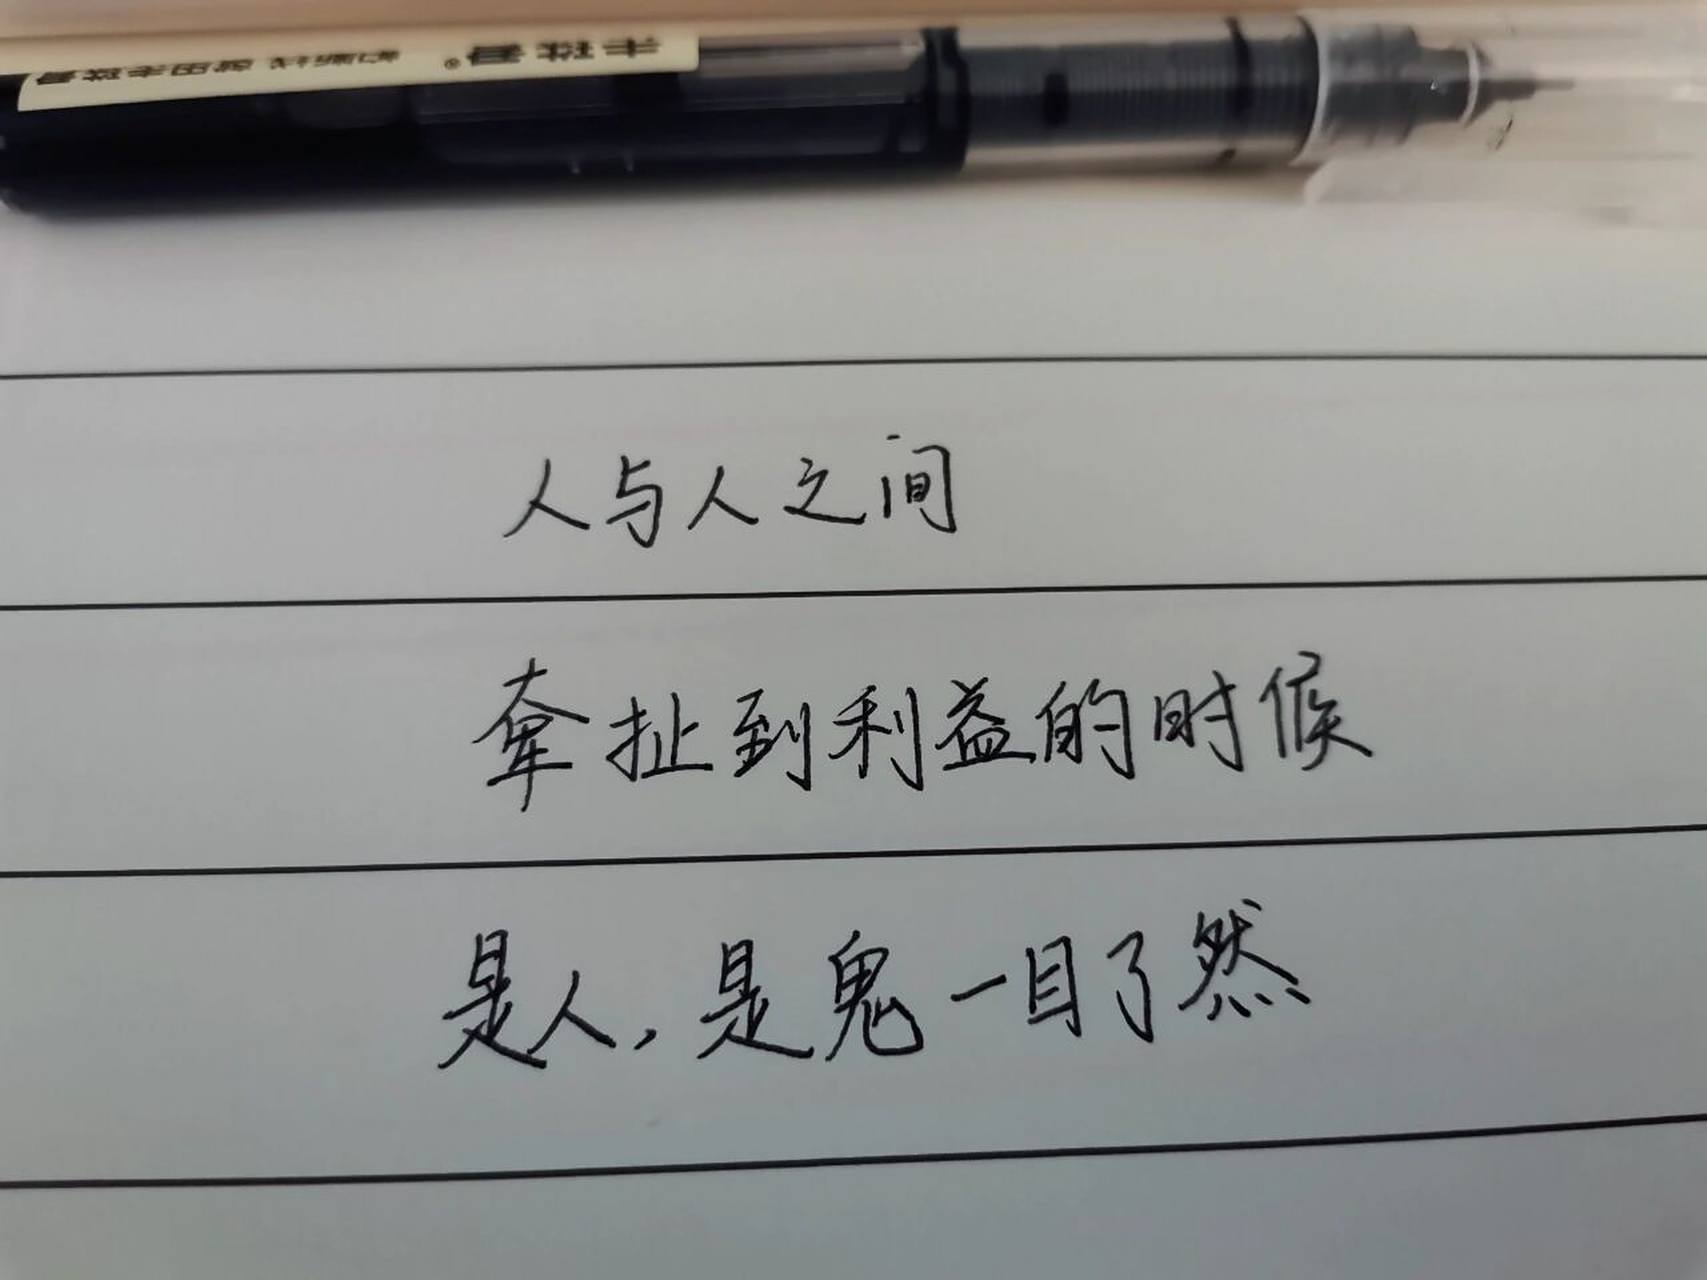 人与人之间
牵扯到利益的时候
是人，是鬼一目了然